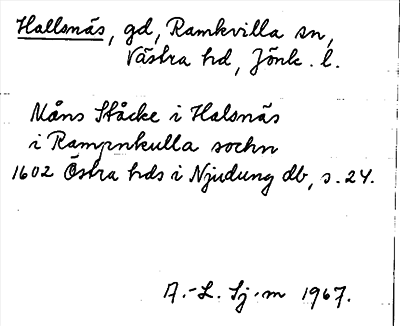 Hallsnäs, gd, Ramkvilla sn,
Västra hd, Jönk. l.
Måns Ståcke i Halsnäs
i Rampnkulla sochn
1602 Östra hds i Njudung db, s. 24.
A.-L. Sj-m 1967.